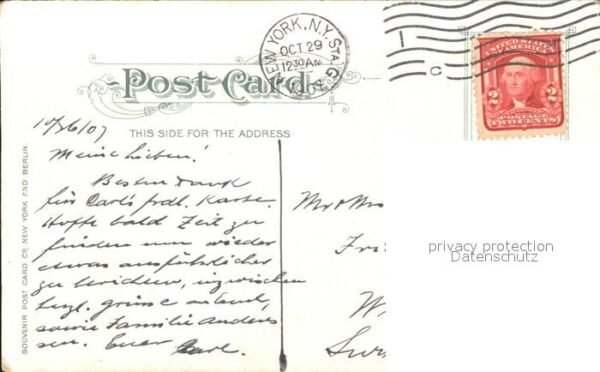 NEW YORK, N.Y. STA. G
OCT 29
12 30 AM
1907
UNITED STATES
OF AMERICA
2 2
POSTAGE
TWO CENTS
Post Card.
THIS SIDE FOR THE ADDRESS
SOUVENIR POST CARD CO., NEW YORK AND BERLIN.
10/26/07
Meine Lieben!
Besten Dank
für Carl's frdl. Karte.
Hoffe bald Zeit zu
finden um wieder
etwas ausführlicher
zu berichten, inzwischen
herzl. grüsse
sowie Familie Anders
sen. Euer Carl.
Mr & Mrs
Fri
W
privacy protection
Datenschutz